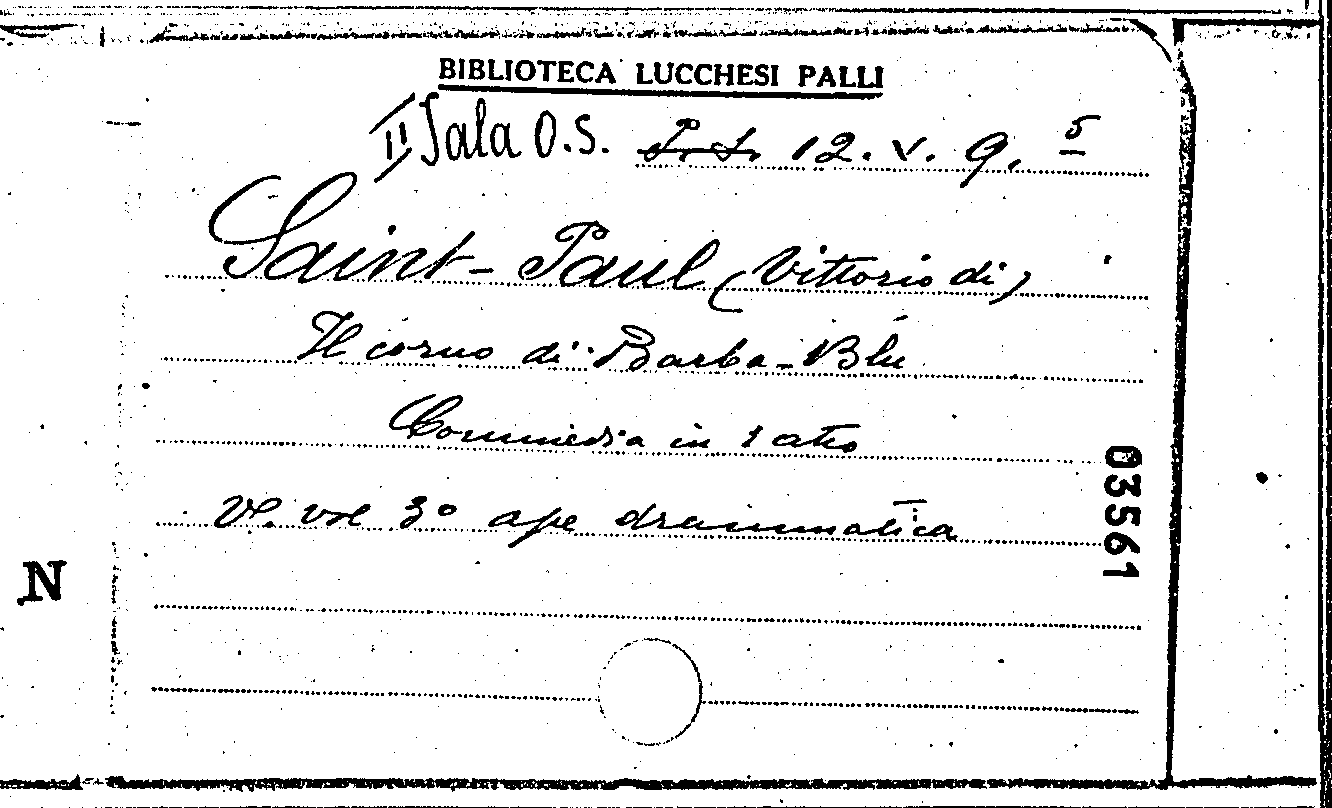 BIBLIOTECA LUCCHESI PALLI
II Sala O.S. 12. V. 9. 5
Saint-Paul (Vittorio di)
Il corno di Barba-Blu
Commedia in 1 atto
Vl. vol 3° ape drammatica
03561
N